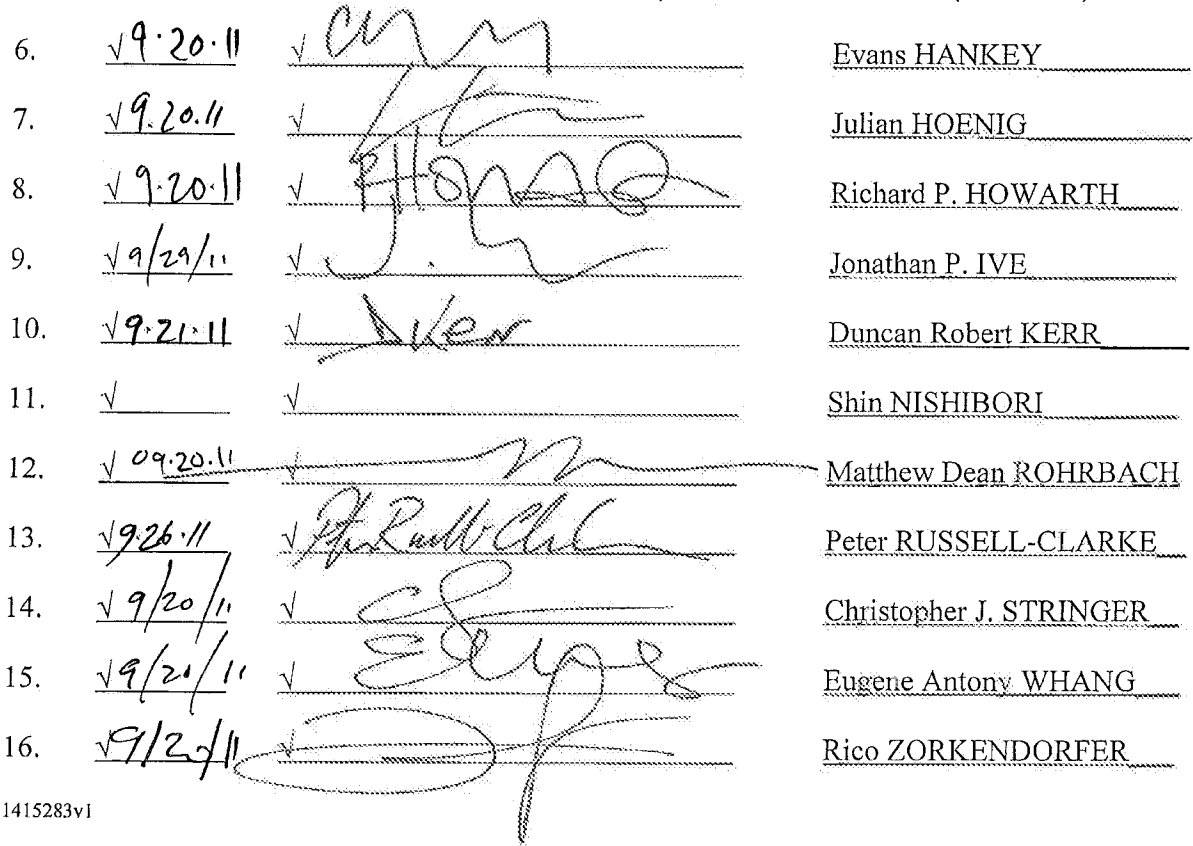 6. √ 9·20·11 √ Evans HANKEY
7. √ 9.20.11 √ Julian HOENIG
8. √ 9·20·11 √ Richard P. HOWARTH
9. √ 9/29/11 √ J. Jonathan P. IVE
10. √ 9·21·11 √ DKerr Duncan Robert KERR
11. √ √ Shin NISHIBORI
12. √ 09.20.11 √ Matthew Dean ROHRBACH
13. √ 9·26·11 √ Peter RUSSELL-CLARKE
14. √ 9/20/11 √ Christopher J. STRINGER
15. √ 9/20/11 √ Eugene Antony WHANG
16. √ 9/20/11 √ Rico ZORKENDORFER
1415283v1